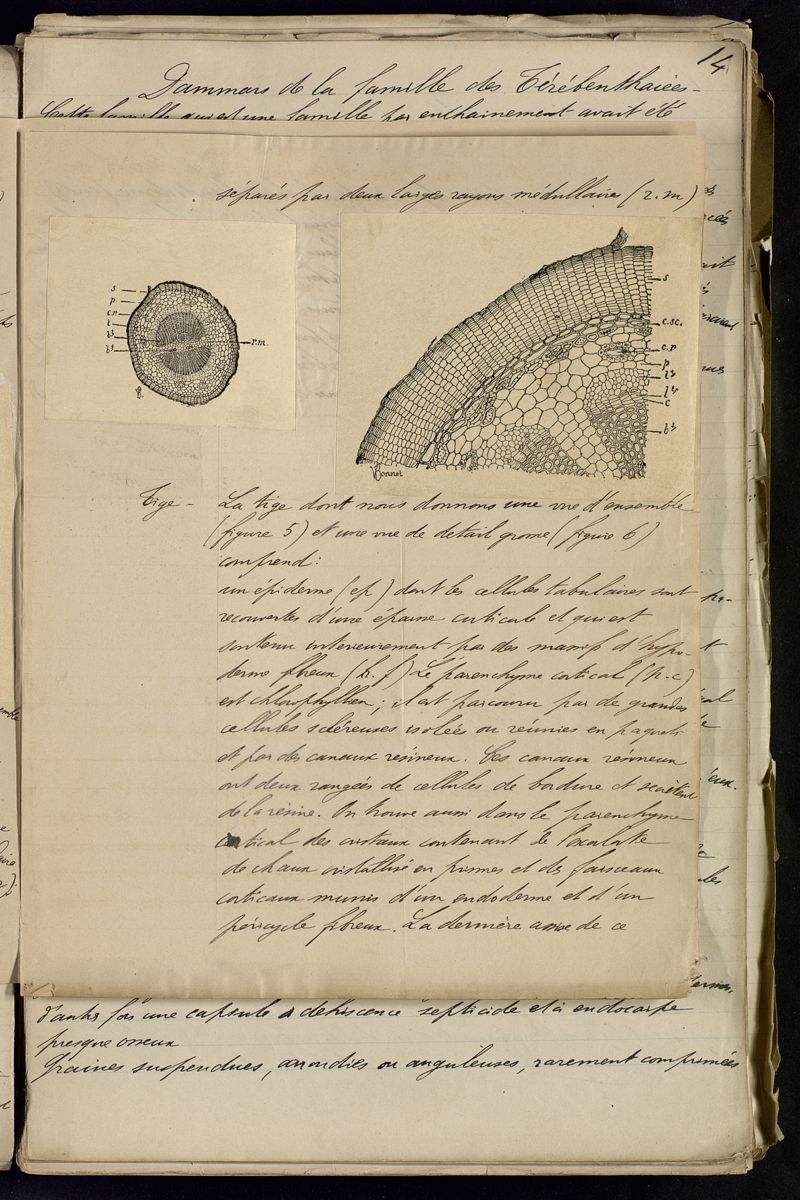 14
Dammars de la famille des Térébenthacées -
Cette famille qui est une famille par enchainement avait été
séparés par deux larges rayons médullaires (r.m)
s
p
c.r
l
b²
b¹
r.m.
s
c.sc.
c.r
p
l²
l¹
c
b²
Bonnet
Tige - La tige dont nous donnons une vue d'ensemble
(figure 5) et une vue de detail grossie (figure 6)
comprend:
un épiderme (ep) dont les cellules tabulaires sont
recouvertes d'une épaisse cuticule et qui est
soutenu interieurement par des massifs d'hypo-
derme fibreux (h.f) Le parenchyme cortical (p.c)
est chlorophyllien; il est parcouru par de grandes
cellules scléreuses isolées ou réunies en paquets
et par des canaux resineux. Ces canaux resineux
ont deux rangées de cellules de bordure et secrètent
de la résine. On trouve aussi dans le parenchyme
cortical des cristaux contenant de l'oxalate
de chaux cristallisé en prismes et des faisceaux
corticaux munis d'un endoderme et d'un
péricycle fibreux. La dernière assise de ce
d'autres fois une capsule à dehiscence septicide et à endocarpe
presque osseux
Graines suspendues, arrondies ou anguleuses, rarement comprimées